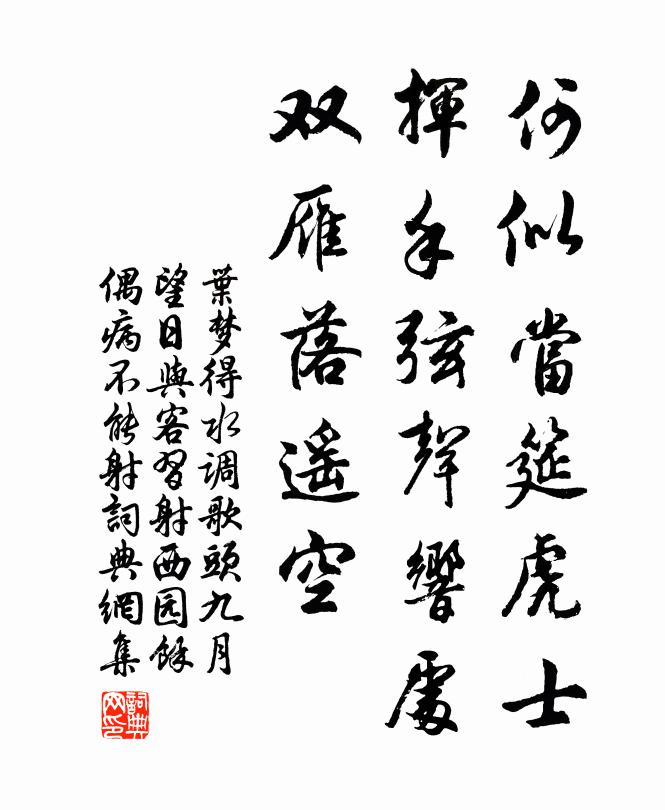 何似當筵虎士
揮手弦聲響處
双雁落遥空
葉梦得水调歌頭九月
望日與客習射西园餘
偶病不能射詞典網集
詞典
网印